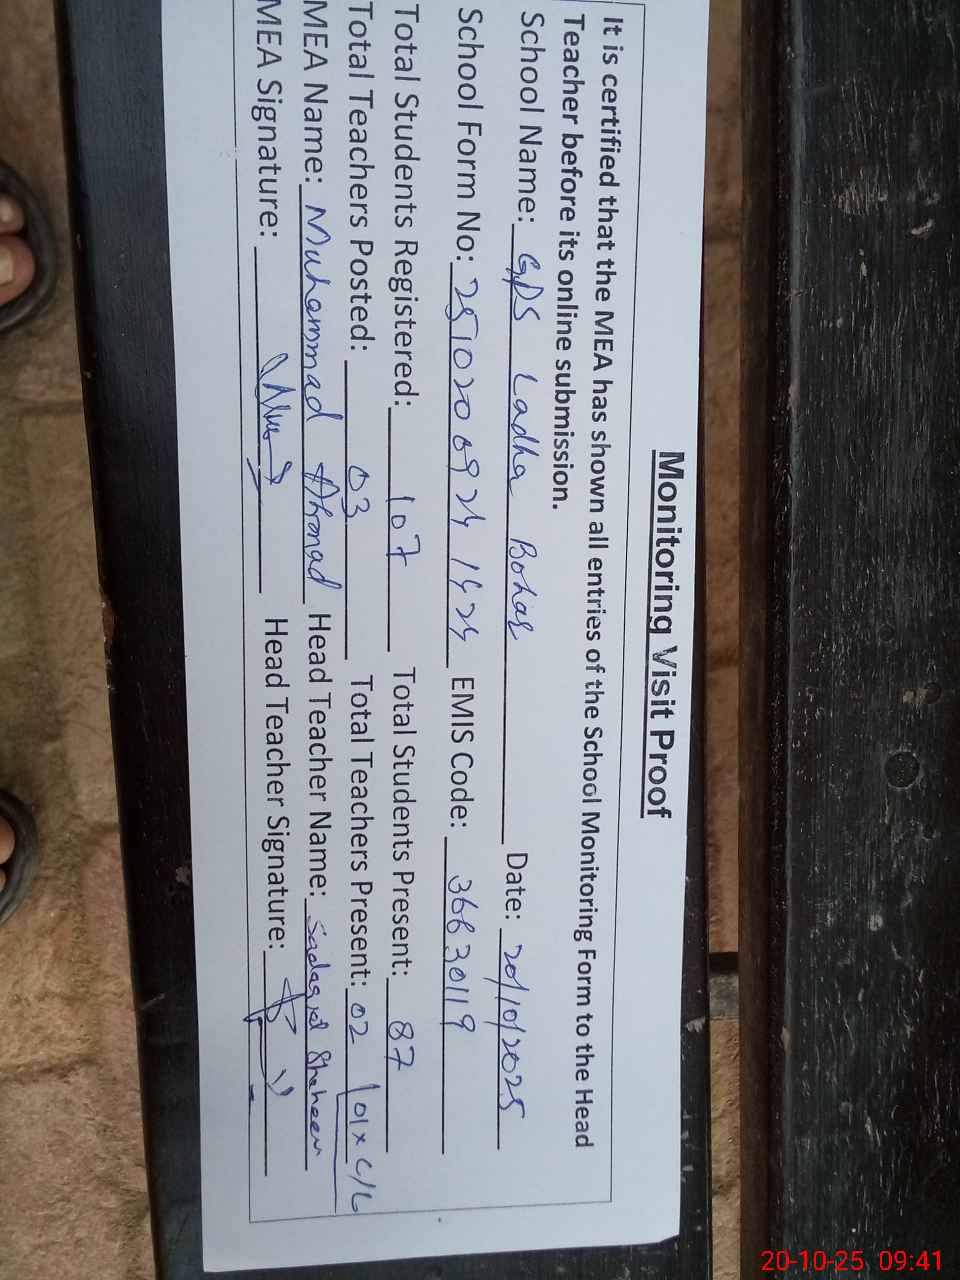 Monitoring Visit Proof
It is certified that the MEA has shown all entries of the School Monitoring Form to the Head
Teacher before its online submission.
School Name: GPS Ladha Bohar Date: 20/10/2025
School Form No: 251020 0924 1424 EMIS Code: 36630119
Total Students Registered: 107 Total Students Present: 87
Total Teachers Posted: 03 Total Teachers Present: 02 01 x C/L
MEA Name: Muhammad Ahmad Head Teacher Name: Shaheen
MEA Signature: Head Teacher Signature:
20-10-25 09:41